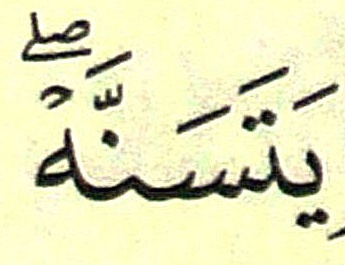 يَتَسَنَّهۡۖ